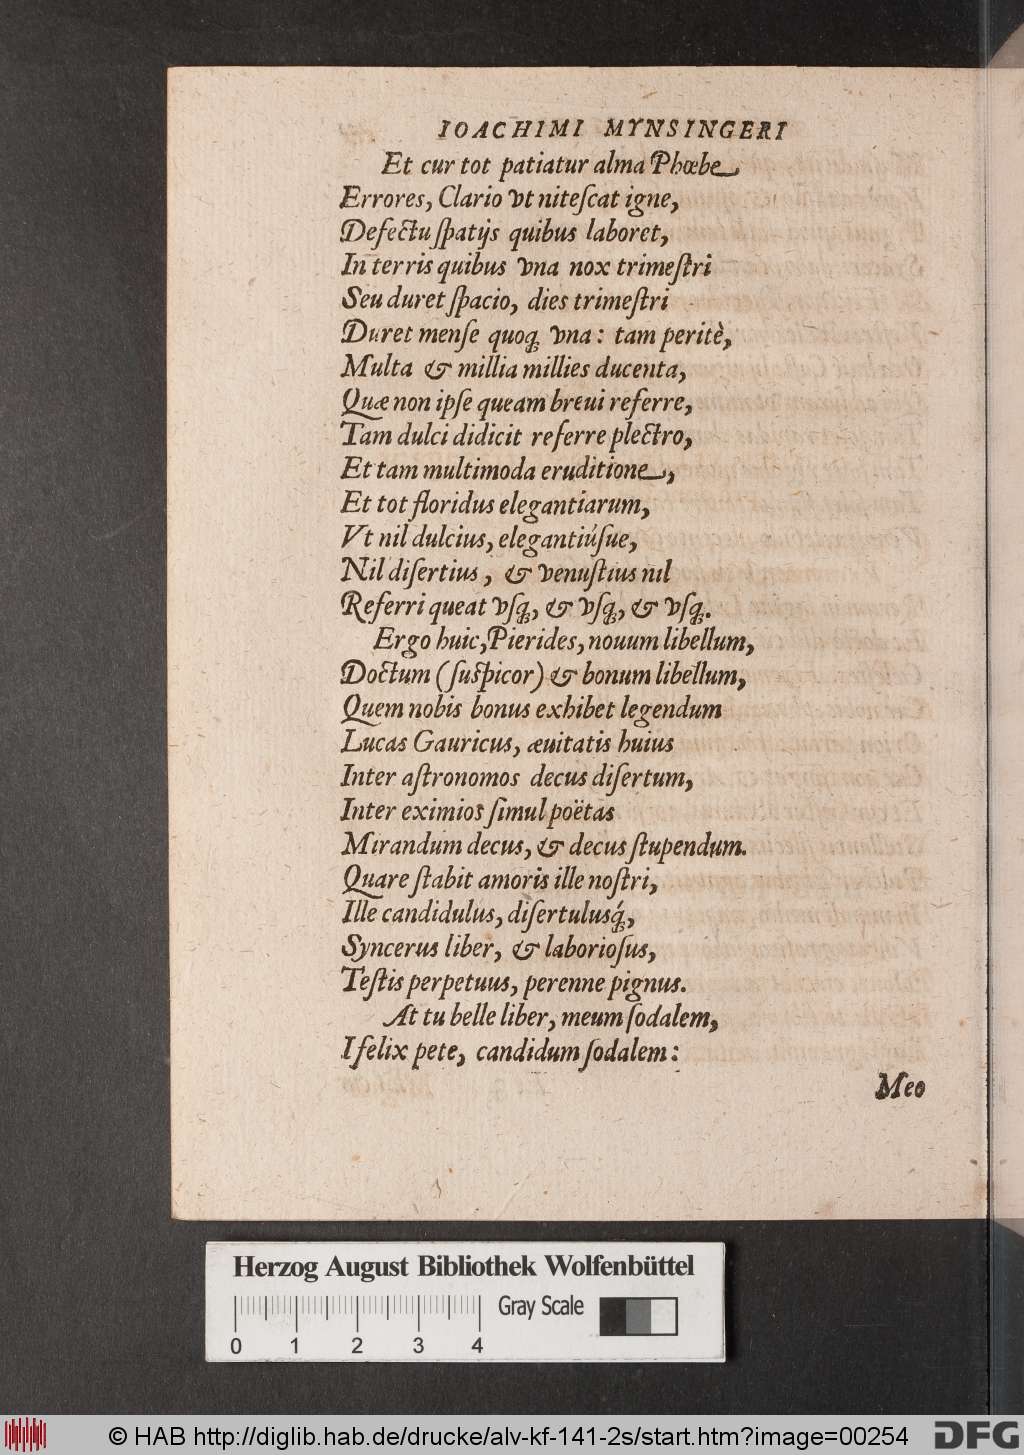 IOACHIMI MYNSINGERI
Et cur tot patiatur alma Phœbe
Errores, Clario vt niteſcat igne,
Defectu ſpatijs quibus laboret,
In terris quibus vna nox trimeſtri
Seu duret ſpacio, dies trimeſtri
Duret menſe quoq; vna: tam peritè,
Multa & millia millies ducenta,
Quæ non ipſe queam breui referre,
Tam dulci didicit referre plectro,
Et tam multimoda eruditione,
Et tot floridus elegantiarum,
Vt nil dulcius, elegantiúſue,
Nil diſertius, & venuſtius nil
Referri queat vſq;, & vſq;, & vſq;.
Ergo huic, Pierides, nouum libellum,
Doctum (ſuſpicor) & bonum libellum,
Quem nobis bonus exhibet legendum
Lucas Gauricus, æuitatis huius
Inter aſtronomos decus diſertum,
Inter eximios ſimul poëtas
Mirandum decus, & decus ſtupendum.
Quare ſtabit amoris ille noſtri,
Ille candidulus, diſertulusq́;,
Syncerus liber, & laborioſus,
Teſtis perpetuus, perenne pignus.
At tu belle liber, meum ſodalem,
I felix pete, candidum ſodalem:
Meo
Herzog August Bibliothek Wolfenbüttel
Gray Scale
0 1 2 3 4
© HAB http://diglib.hab.de/drucke/alv-kf-141-2s/start.htm?image=00254
DFG